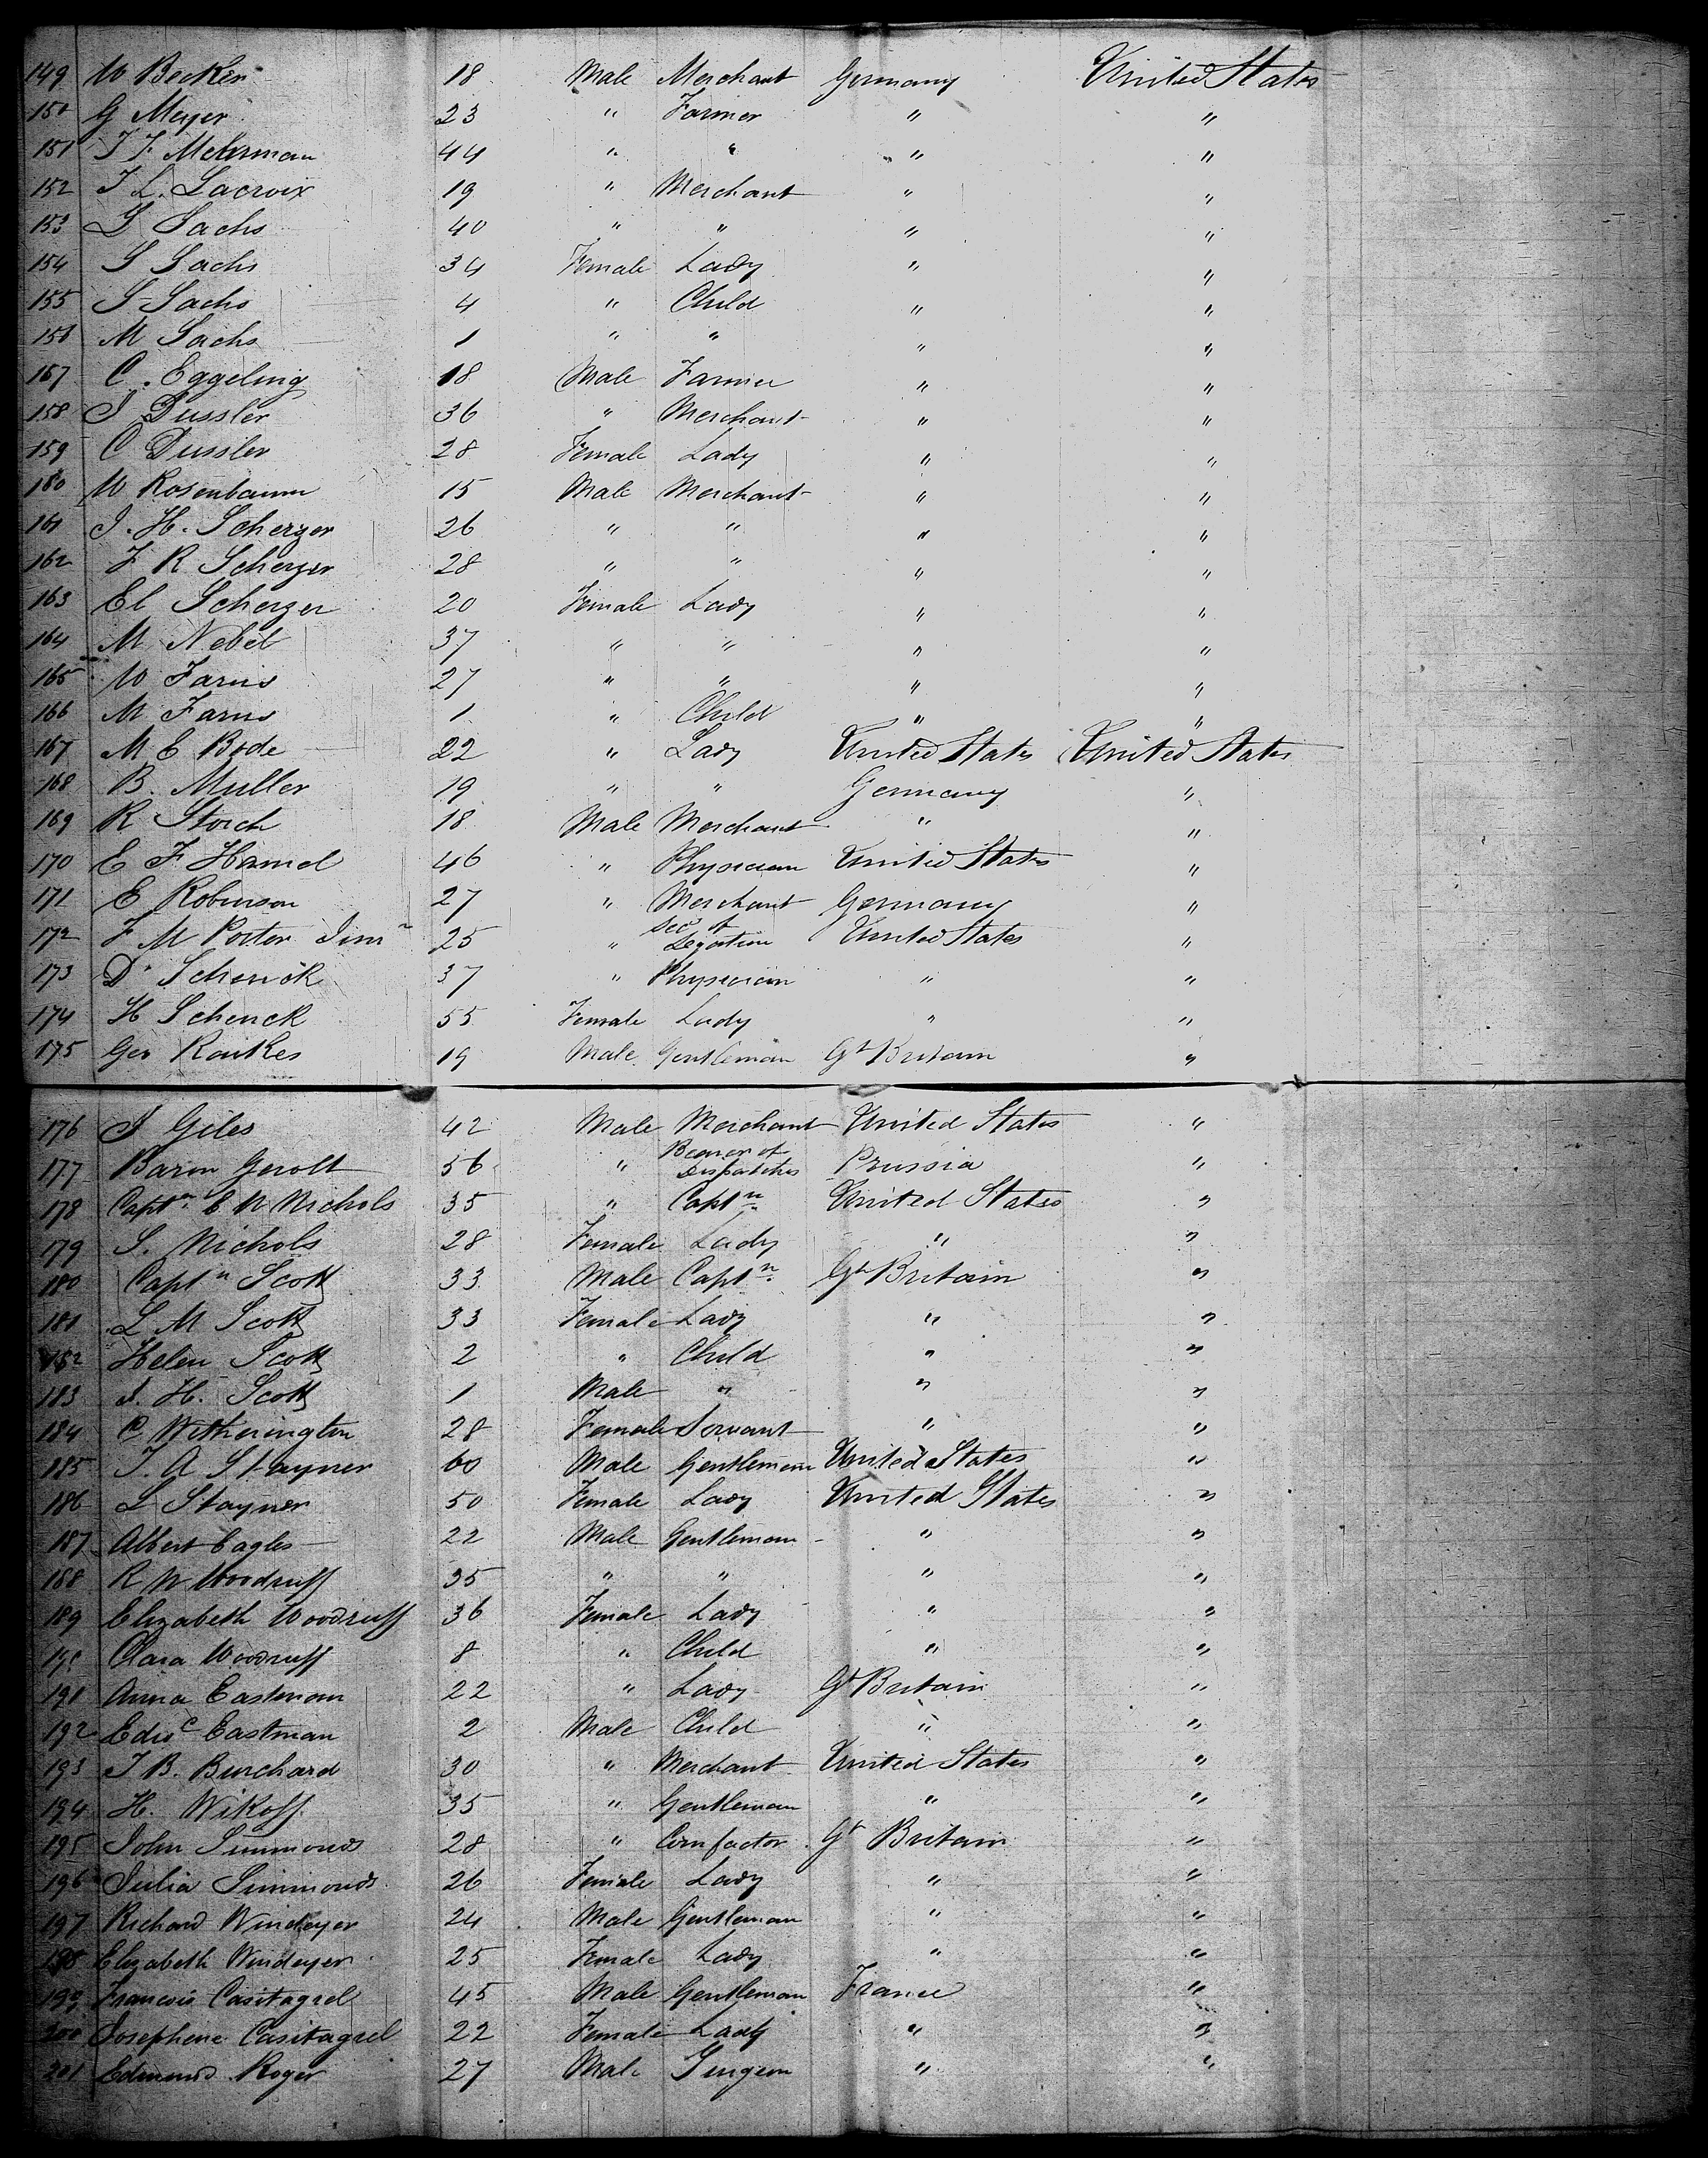 149 W Becker 18 Male Merchant Germany United States
150 G Meyer 23 " Farmer " "
151 J F Mehrman 44 " " " "
152 J L. Lacroix 19 " Merchant " "
153 L Sachs 40 " " " "
154 S Sachs 34 Female Lady " "
155 S Sachs 4 " Child " "
156 M Sachs 1 " " " "
157 C. Eggeling 18 Male Farmer " "
158 J Dussler 36 " Merchant " "
159 C Dussler 28 Female Lady " "
160 W Rosenbaum 15 Male Merchant " "
161 J. H. Scherzer 26 " " " "
162 F R Scherzer 28 " " " "
163 El Scherzer 20 Female Lady " "
164 M Nebel 37 " " " "
165 W Farus 27 " " " "
166 M Farus 1 " Child " "
167 M E Bode 22 " Lady United States United States
168 B. Muller 19 " " Germany "
169 R Storch 18 Male Merchant " "
170 E F Hamel 46 " Physician United States "
171 E Robinson 27 " Merchant Germany "
172 F M Porter Junr 25 " Sec of Legation United States "
173 Dr Schenck 37 " Physician " "
174 H Schenck 55 Female Lady " "
175 Geo Raikes 19 Male Gentleman Gt Britain "
176 J Giles 42 Male Merchant United States "
177 Baron Gerolt 56 " Bearer of Dispatches Prussia "
178 Captn E N Nichols 35 " Captn United States "
179 S. Nichols 28 Female Lady " "
180 Captn Scott 33 Male Captn Gt Britain "
181 L M Scott 33 Female Lady " "
182 Helen Scott 2 " Child " "
183 J. H. Scott 1 Male " " "
184 C Witherington 28 Female Servant " "
185 J. A Stayner 60 Male Gentleman United States "
186 L Stayner 50 Female Lady United States "
187 Albert Eagles 22 Male Gentleman " "
188 R N Woodruff 35 " " " "
189 Elizabeth Woodruff 36 Female Lady " "
190 Clara Woodruff 8 " Child " "
191 Anna Eastman 22 " Lady Gt Britain "
192 Edwc Eastman 2 Male Child " "
193 J B. Burchard 30 " Merchant United States "
194 H. Wikoff 35 " Gentleman " "
195 John Simmonds 28 " Cornfactor Gt Britain "
196 Julia Simmonds 26 Female Lady " "
197 Richard Windeyer 24 Male Gentleman " "
198 Elizabeth Windeyer 25 Female Lady " "
199 Francois Casitagrel 45 Male Gentleman France "
200 Josephene Casitagrel 22 Female Lady " "
201 Edmund Roger 27 Male Surgeon " "